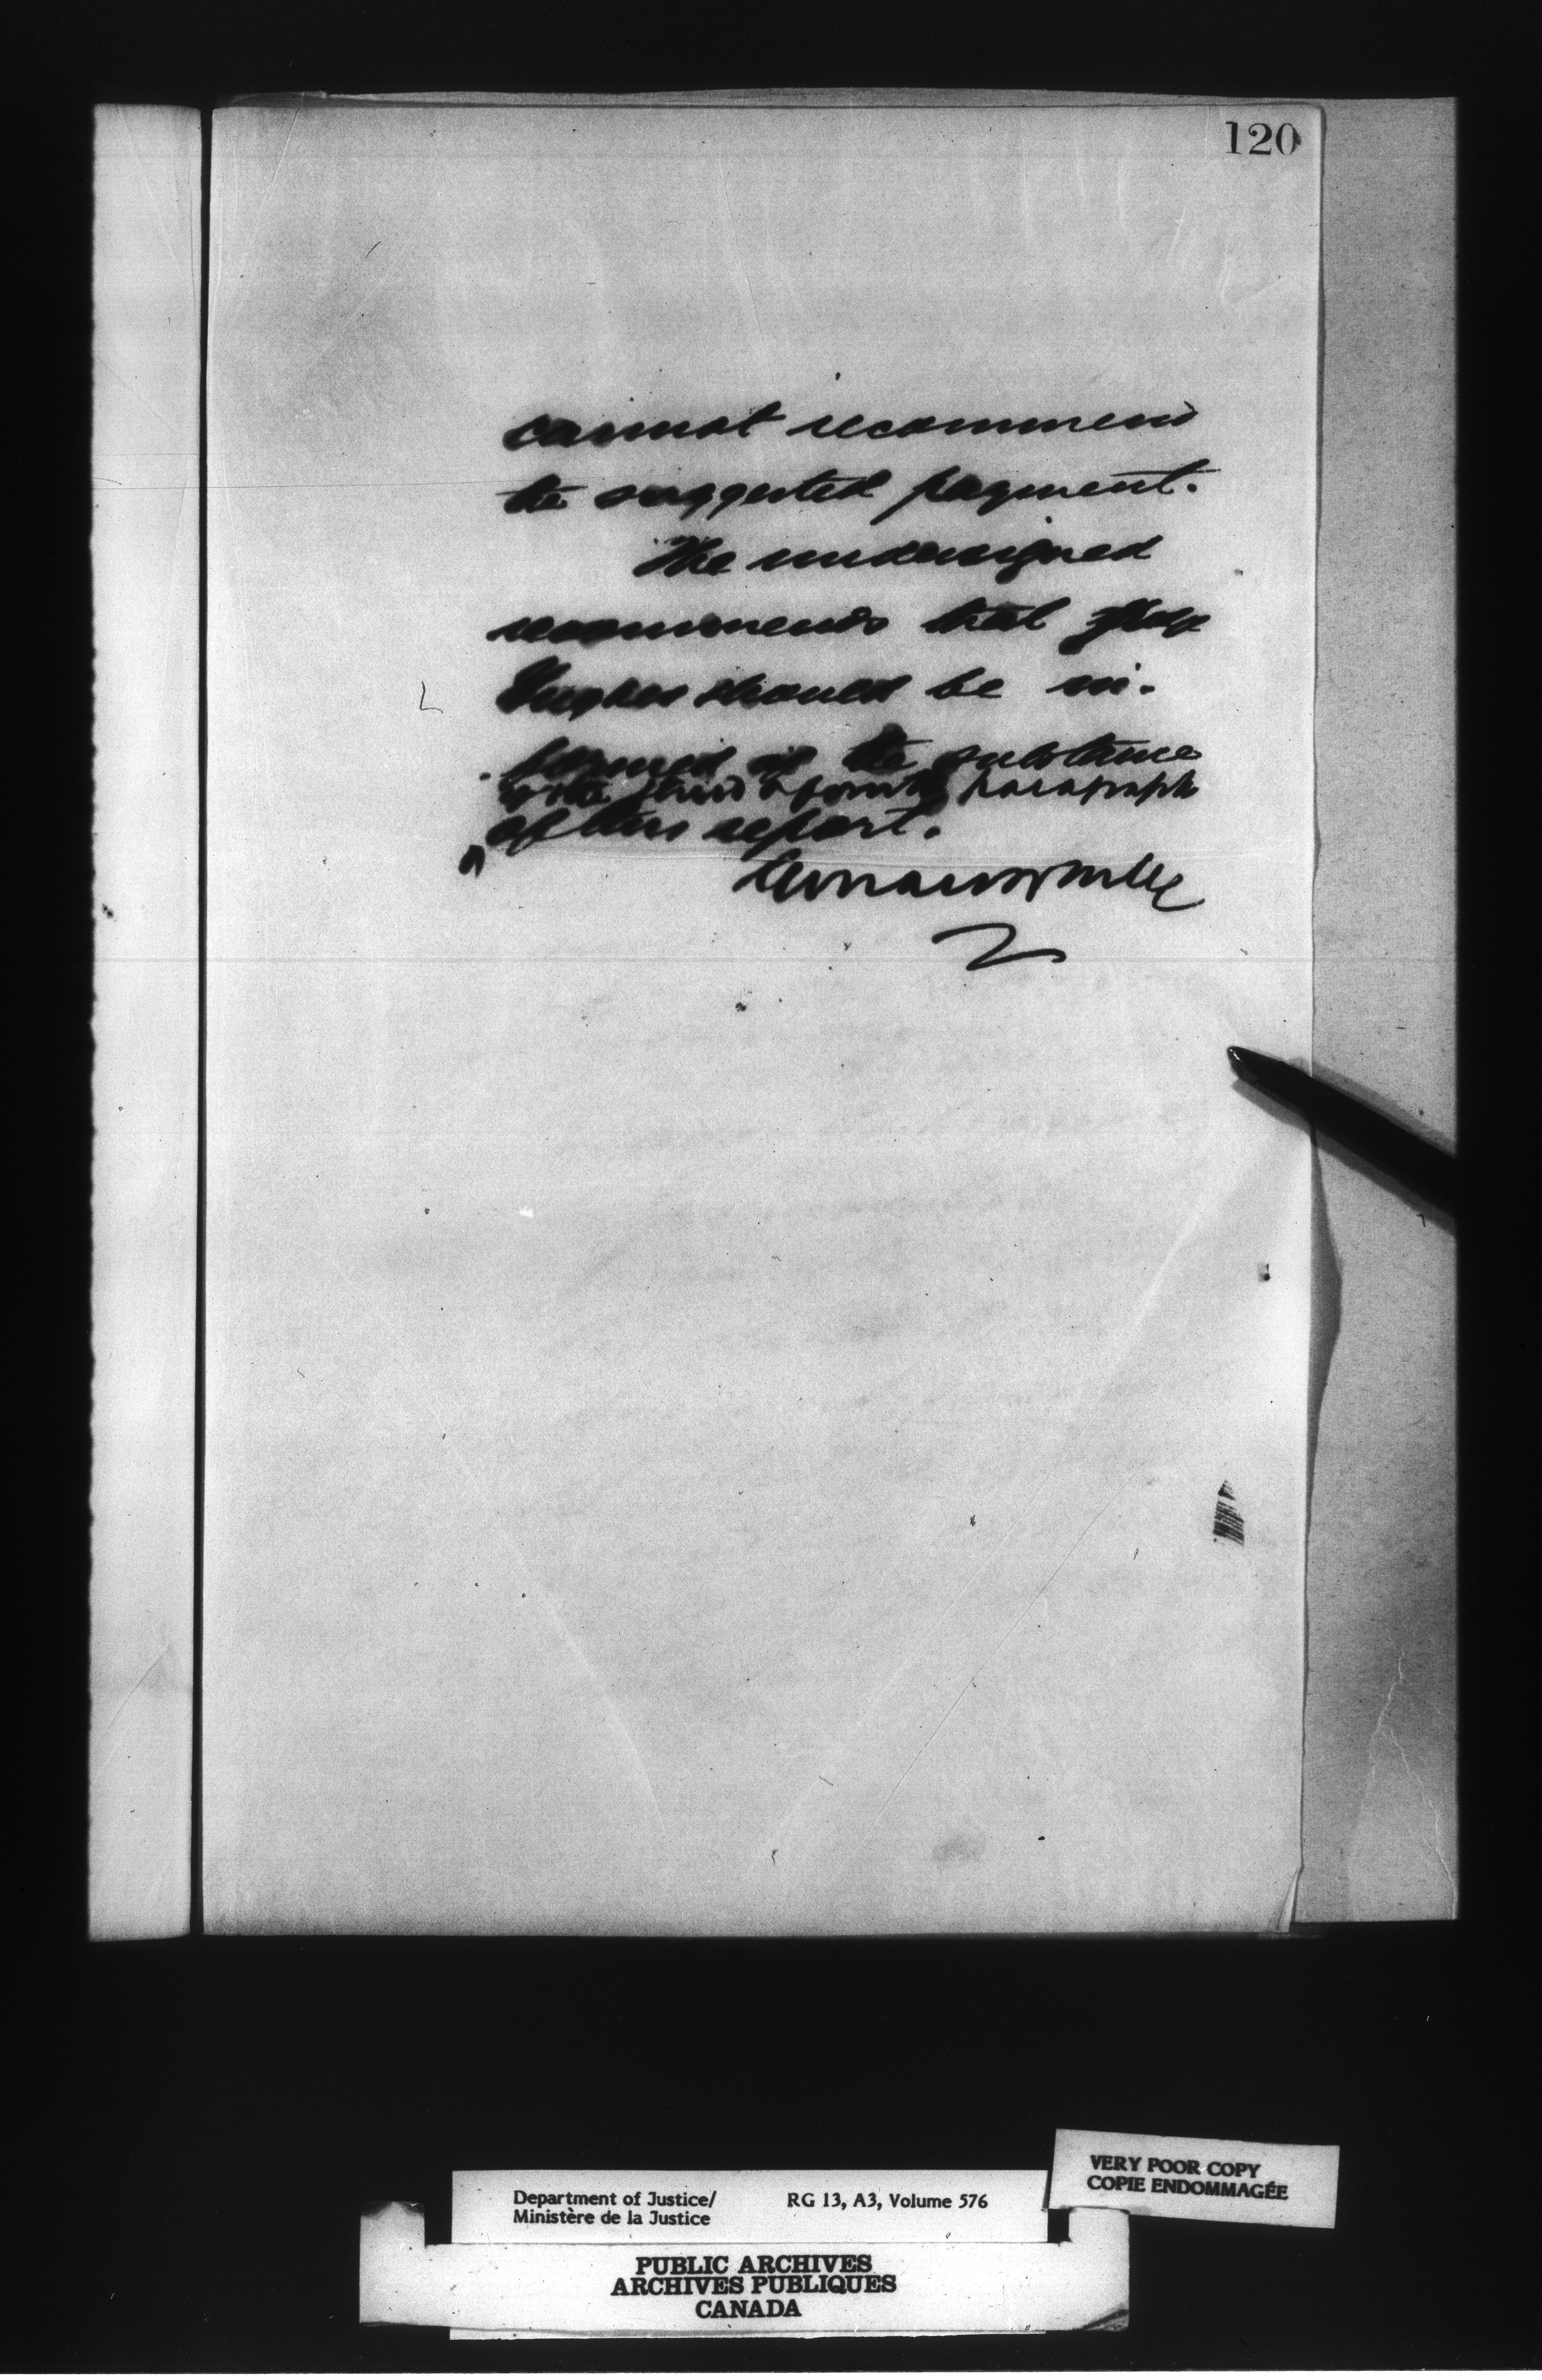 120
cannot recommend
the suggested payment.
The undersigned
recommends that
Hughes should be in-
formed of the substance
of the third & fourth paragraph
of this report.
Department of Justice/
Ministère de la Justice
RG 13, A3, Volume 576
VERY POOR COPY
COPIE ENDOMMAGÉE
PUBLIC ARCHIVES
ARCHIVES PUBLIQUES
CANADA